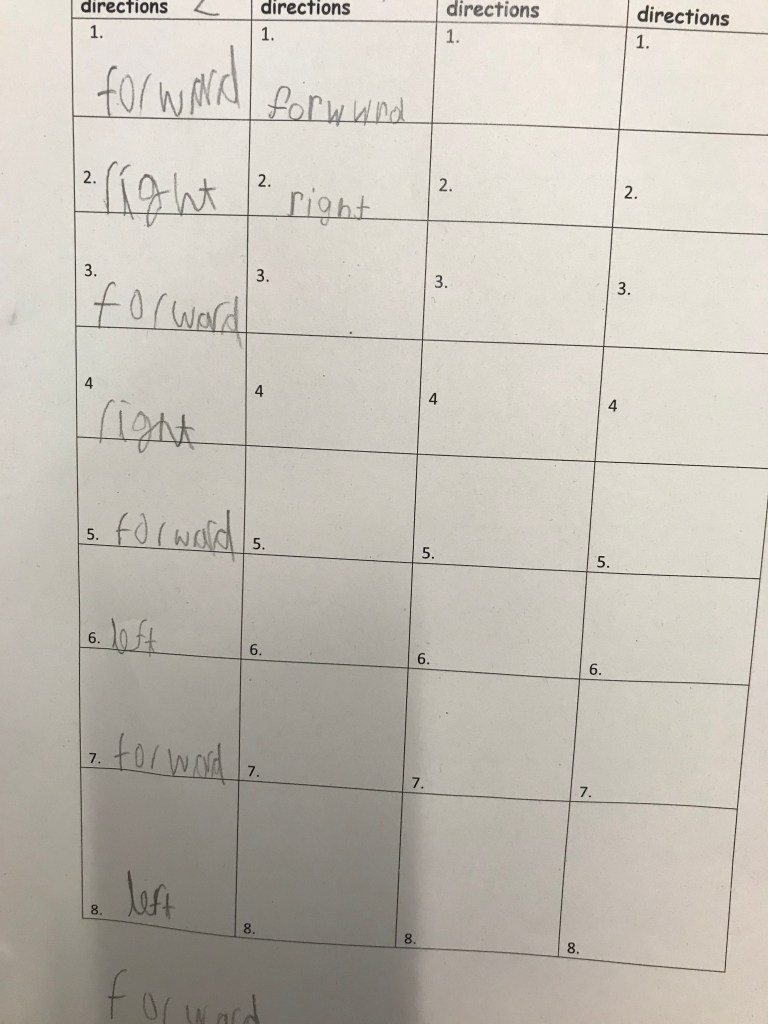 directions directions directions directions
1. forward 1. forwurd 1. 1.
2. right 2. right 2. 2.
3. forward 3. 3. 3.
4 right 4 4 4
5. forward 5. 5. 5.
6. left 6. 6. 6.
7. forward 7. 7. 7.
8. left 8. 8. 8.
forward